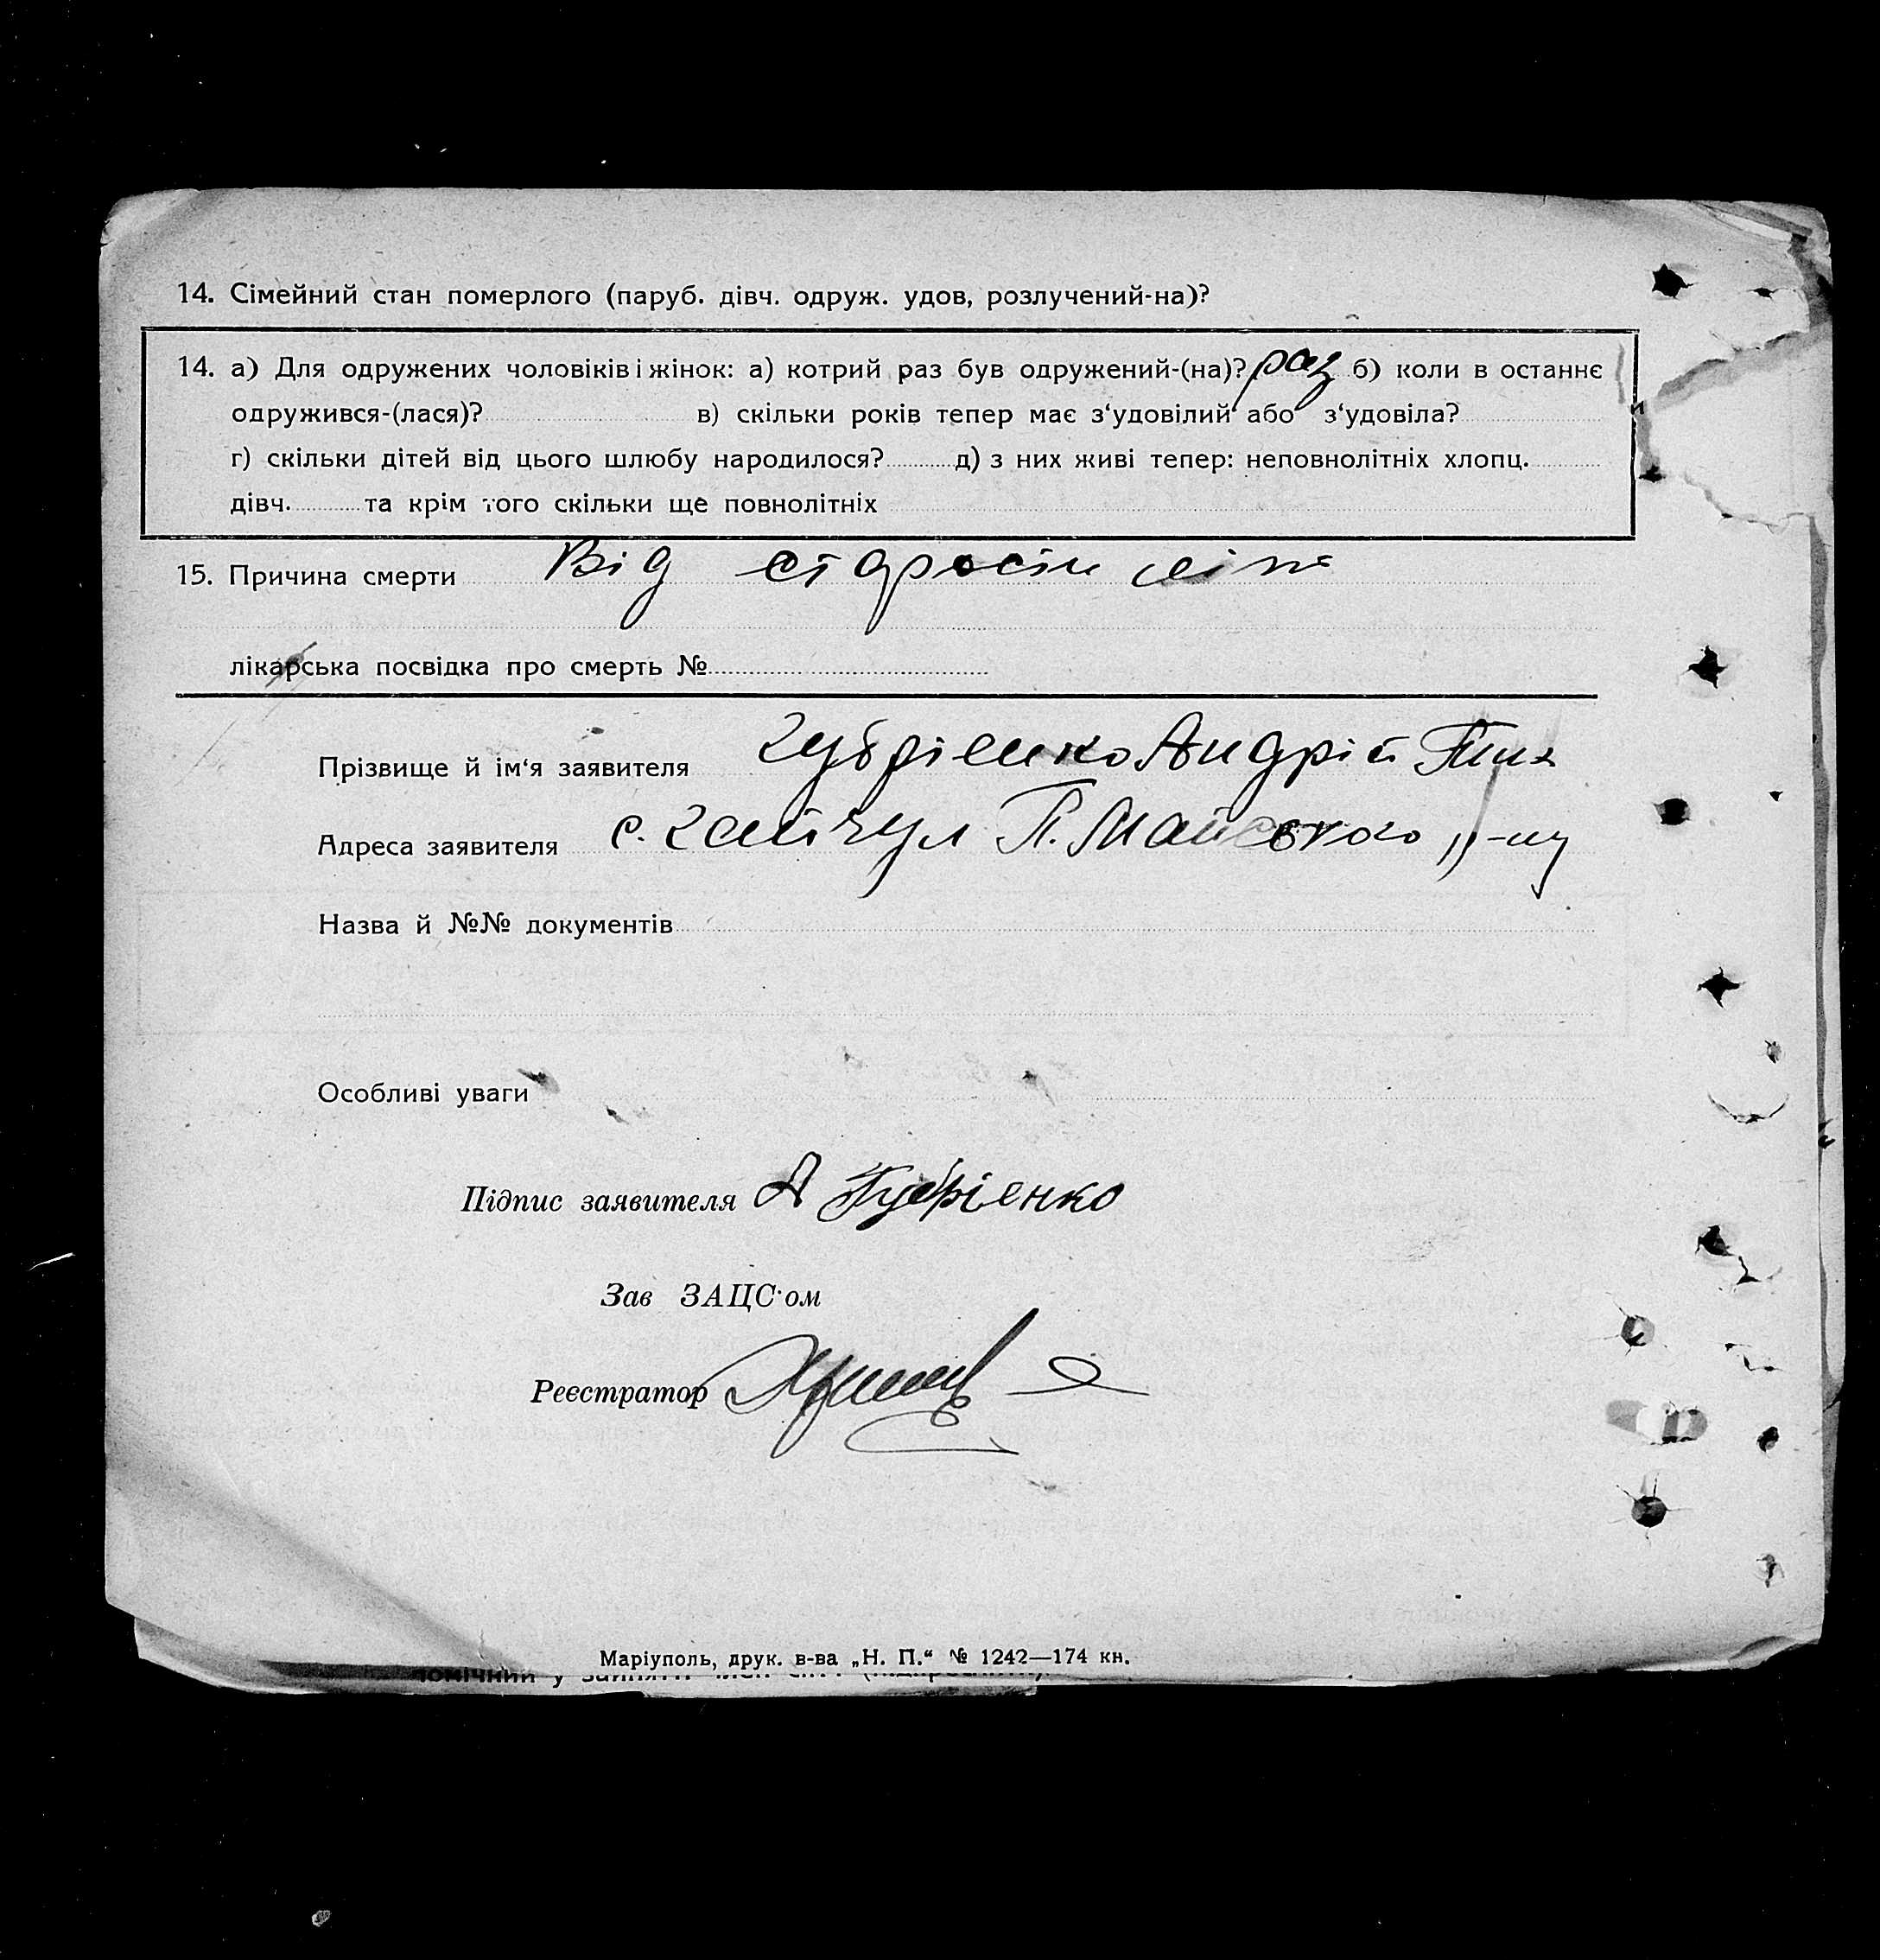 14. Сімейний стан померлого (паруб. дівч. одруж. удов, розлучений-на)?
14. а) Для одружених чоловіків і жінок: а) котрий раз був одружений-(на)? раз б) коли в останнє
одружився-(лася)? в) скільки років тепер має з‘удовілий або з‘удовіла?
г) скільки дітей від цього шлюбу народилося? д) з них живі тепер: неповнолітніх хлопц.
дівч. та крім того скільки ще повнолітніх
15. Причина смерти Від старости літ
лікарська посвідка про смерть №
Прізвище й ім‘я заявителя Губрієнко Андрій
Адреса заявителя с. Гайчул П. Майського р-ну
Назва й №№ документів
Особливі уваги
Підпис заявителя А Губрієнко
Зав ЗАЦС·ом
Реєстратор
Маріуполь, друк. в-ва „Н. П.“ № 1242—174 кн.